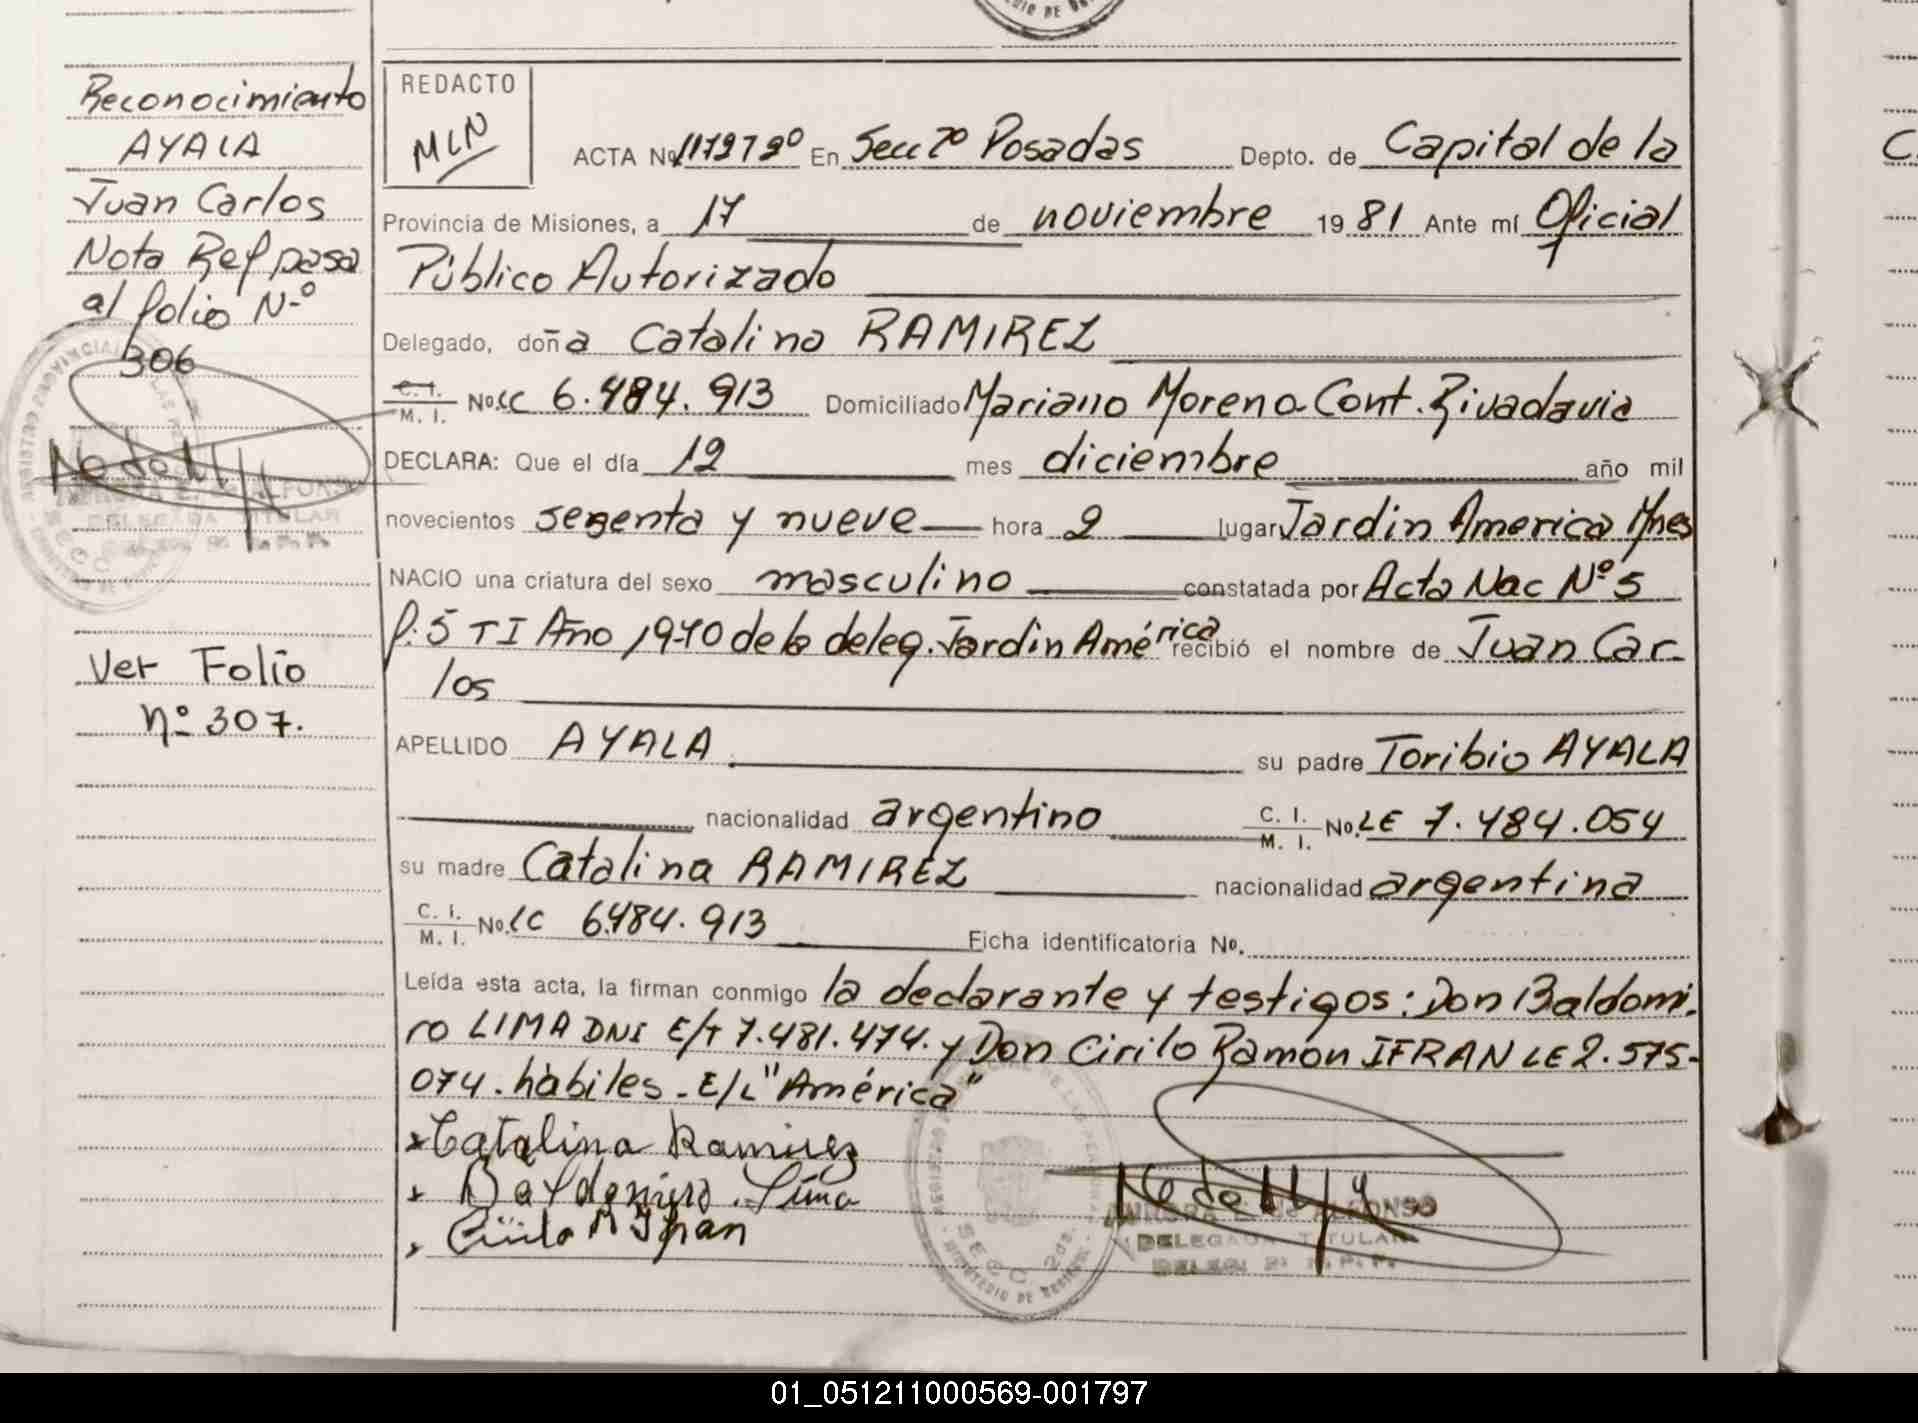 Reconocimiento
AYALA
Juan Carlos
Nota Ref pasa
al folio N-º
306
Ver Folio
Nº 307.
REDACTO
MLN
ACTA Nº En Secc 2º Posadas Depto. de Capital de la
Provincia de Misiones, a 17 de noviembre 1981 Ante mí Oficial
Público Autorizado
Delegado, doña Catalina RAMIREZ
C. I. / M. I. No. LC 6.484.913 Domiciliado Mariano Moreno Cont. Rivadavia
DECLARA: Que el día 12 mes diciembre año mil
novecientos sesenta y nueve hora 2 lugar Jardin America Mnes
NACIO una criatura del sexo masculino constatada por Acta Nac Nº 5
f: 5 TI Año 1970 de la deleg. Jardin América recibió el nombre de Juan Car-
los
APELLIDO AYALA su padre Toribio AYALA
nacionalidad argentino C. I. / M. I. No. LE 7.484.054
su madre Catalina RAMIREZ nacionalidad argentina
C. I. / M. I. No. LC 6.484.913 Ficha identificatoria No.
Leída esta acta, la firman conmigo la declarante y testigos: Don Baldomi-
ro LIMA DNI E/T 7.481.474. y Don Cirilo Ramón IFRAN LE 2.575-
074. hábiles - E/L "América"
Catalina Ramirez
Baldomiro Lima
Cirilo R Ifran
AURORA E. de ALFONSO
DELEGADA TITULAR
SECC. 2da.
01_051211000569-001797